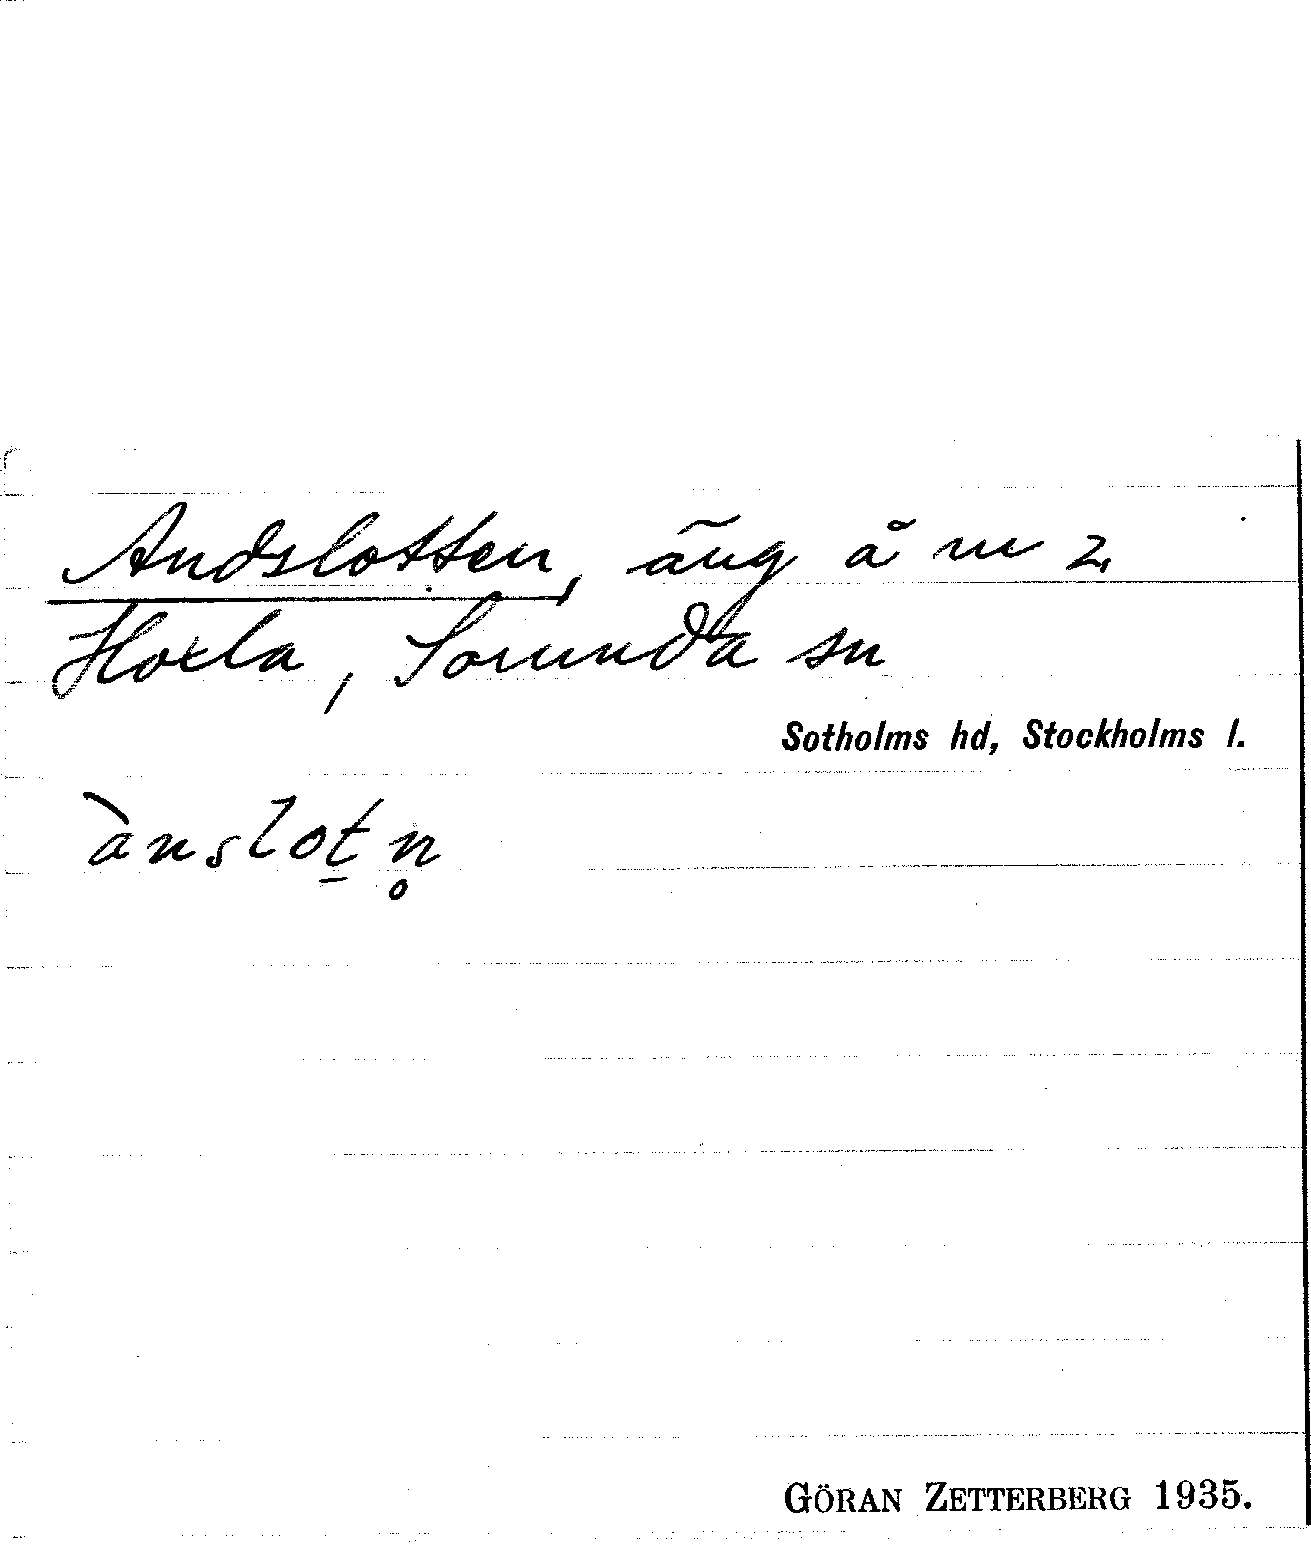 Andslotten, äng å nr 2,
Hoxla, Sorunda sn
Sotholms hd, Stockholms l.
ànslot̠n̥
GÖRAN ZETTERBERG 1935.